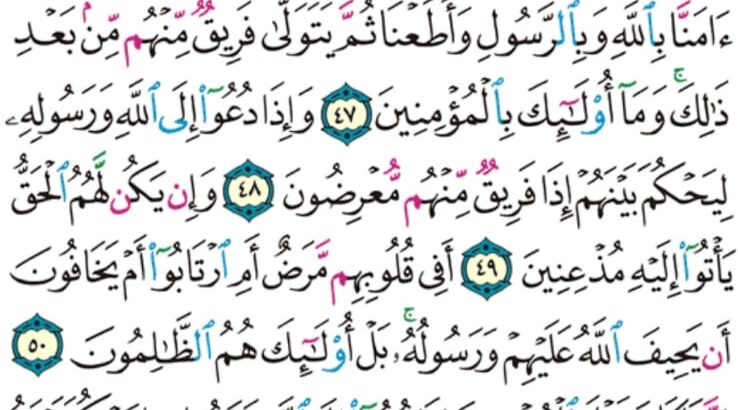 ءَامَنَّا بِٱللَّهِ وَبِٱلرَّسُولِ وَأَطَعْنَا ثُمَّ يَتَوَلَّىٰ فَرِيقٌ مِّنْهُم مِّنۢ بَعْدِ
ذَٰلِكَۚ وَمَآ أُو۟لَـٰٓئِكَ بِٱلْمُؤْمِنِينَ ٤٧ وَإِذَا دُعُوٓا۟ إِلَى ٱللَّهِ وَرَسُولِهِۦ
لِيَحْكُمَ بَيْنَهُمْ إِذَا فَرِيقٌ مِّنْهُم مُّعْرِضُونَ ٤٨ وَإِن يَكُن لَّهُمُ ٱلْحَقُّ
يَأْتُوٓا۟ إِلَيْهِ مُذْعِنِينَ ٤٩ أَفِى قُلُوبِهِم مَّرَضٌ أَمِ ٱرْتَابُوٓا۟ أَمْ يَخَافُونَ
أَن يَحِيفَ ٱللَّهُ عَلَيْهِمْ وَرَسُولُهُۥۚ بَلْ أُو۟لَـٰٓئِكَ هُمُ ٱلظَّـٰلِمُونَ ٥٠